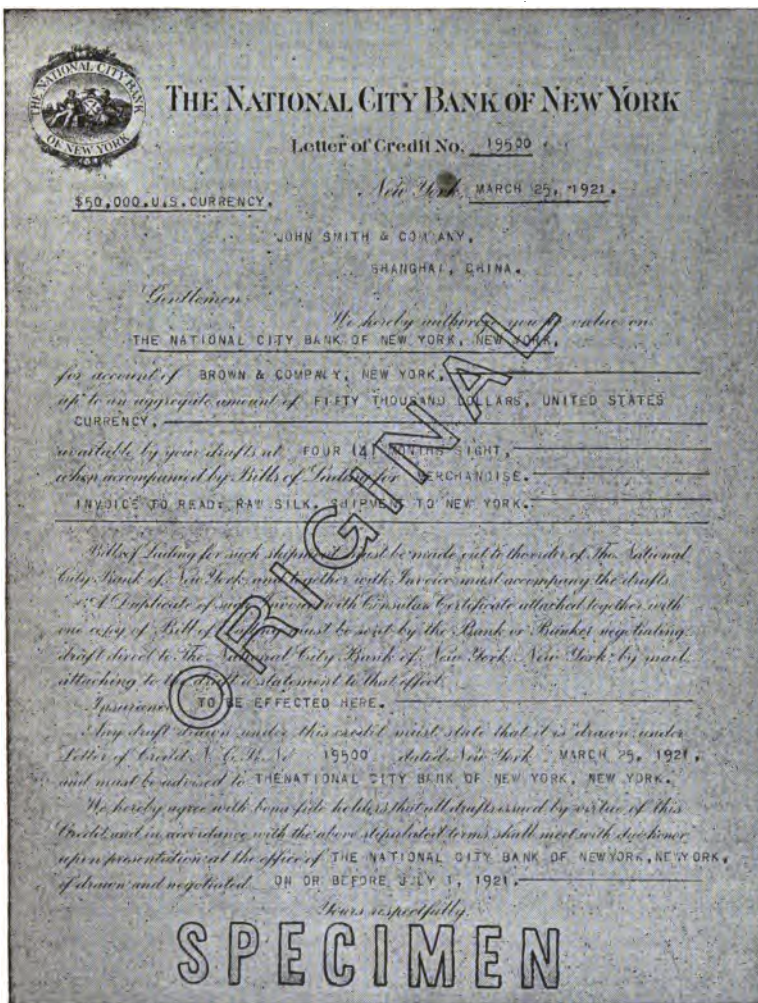 THE NATIONAL CITY BANK
OF NEW YORK
THE NATIONAL CITY BANK OF NEW YORK
Letter of Credit No. 19500
New York, MARCH 25, 1921.
$50,000.U.S.CURRENCY.
JOHN SMITH & COMPANY,
SHANGHAI, CHINA.
Gentlemen:
We hereby authorize you to value on
THE NATIONAL CITY BANK OF NEW YORK, NEW YORK,
for account of BROWN & COMPANY, NEW YORK,
up to an aggregate amount of FIFTY THOUSAND DOLLARS, UNITED STATES
CURRENCY,
available by your drafts at FOUR (4) MONTHS SIGHT,
when accompanied by Bills of Lading for MERCHANDISE.
INVOICE TO READ: RAW SILK. SHIPMENT TO NEW YORK.
Bills of Lading for such shipment must be made out to the order of The National
City Bank of New York and together with Invoice must accompany the drafts.
A Duplicate of such Invoice with Consular Certificate attached together with
one copy of Bill of Lading must be sent by the Bank or Banker negotiating
draft direct to The National City Bank of New York, New York, by mail,
attaching to the draft a statement to that effect.
Insurance TO BE EFFECTED HERE.
Any draft drawn under this credit must state that it is "drawn under
Letter of Credit N. C. B. No 19500 dated New York MARCH 25, 1921,
and must be advised to THENATIONAL CITY BANK OF NEW YORK, NEW YORK.
We hereby agree with bona fide holders that all drafts issued by virtue of this
Credit and in accordance with the above stipulated terms shall meet with due honor
upon presentation at the office of THE NATIONAL CITY BANK OF NEWYORK,NEWYORK,
if drawn and negotiated ON OR BEFORE JULY 1, 1921.
Yours respectfully,
ORIGINAL
SPECIMEN